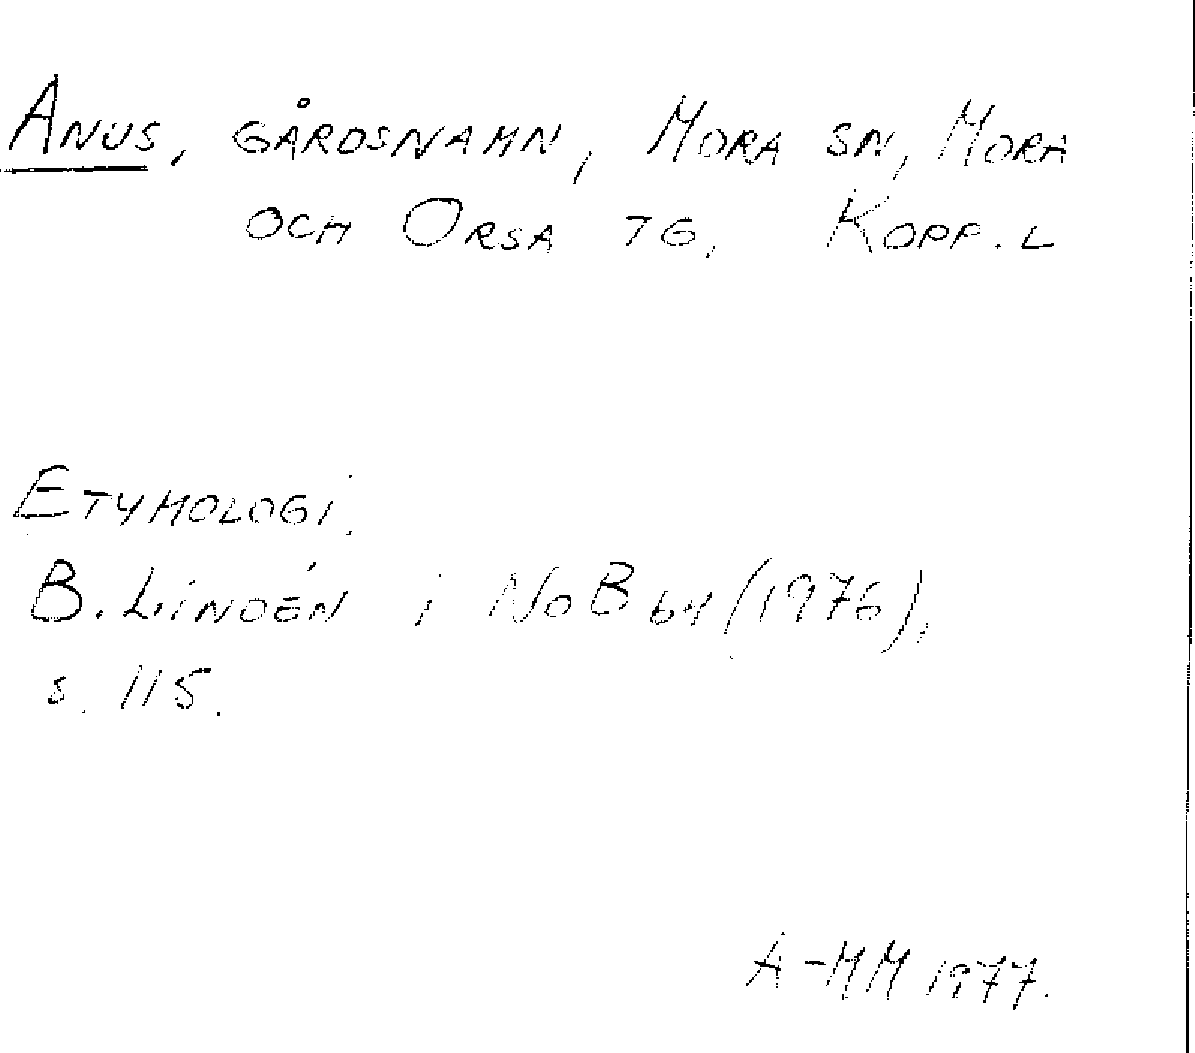 ANUS, GÅRDSNAMN, MORA SN, MORA
OCH ORSA TG, KOPP.L
ETYMOLOGI.
B. LINDÉN i NoB 64 (1976),
s. 115.
A-MM 1977.